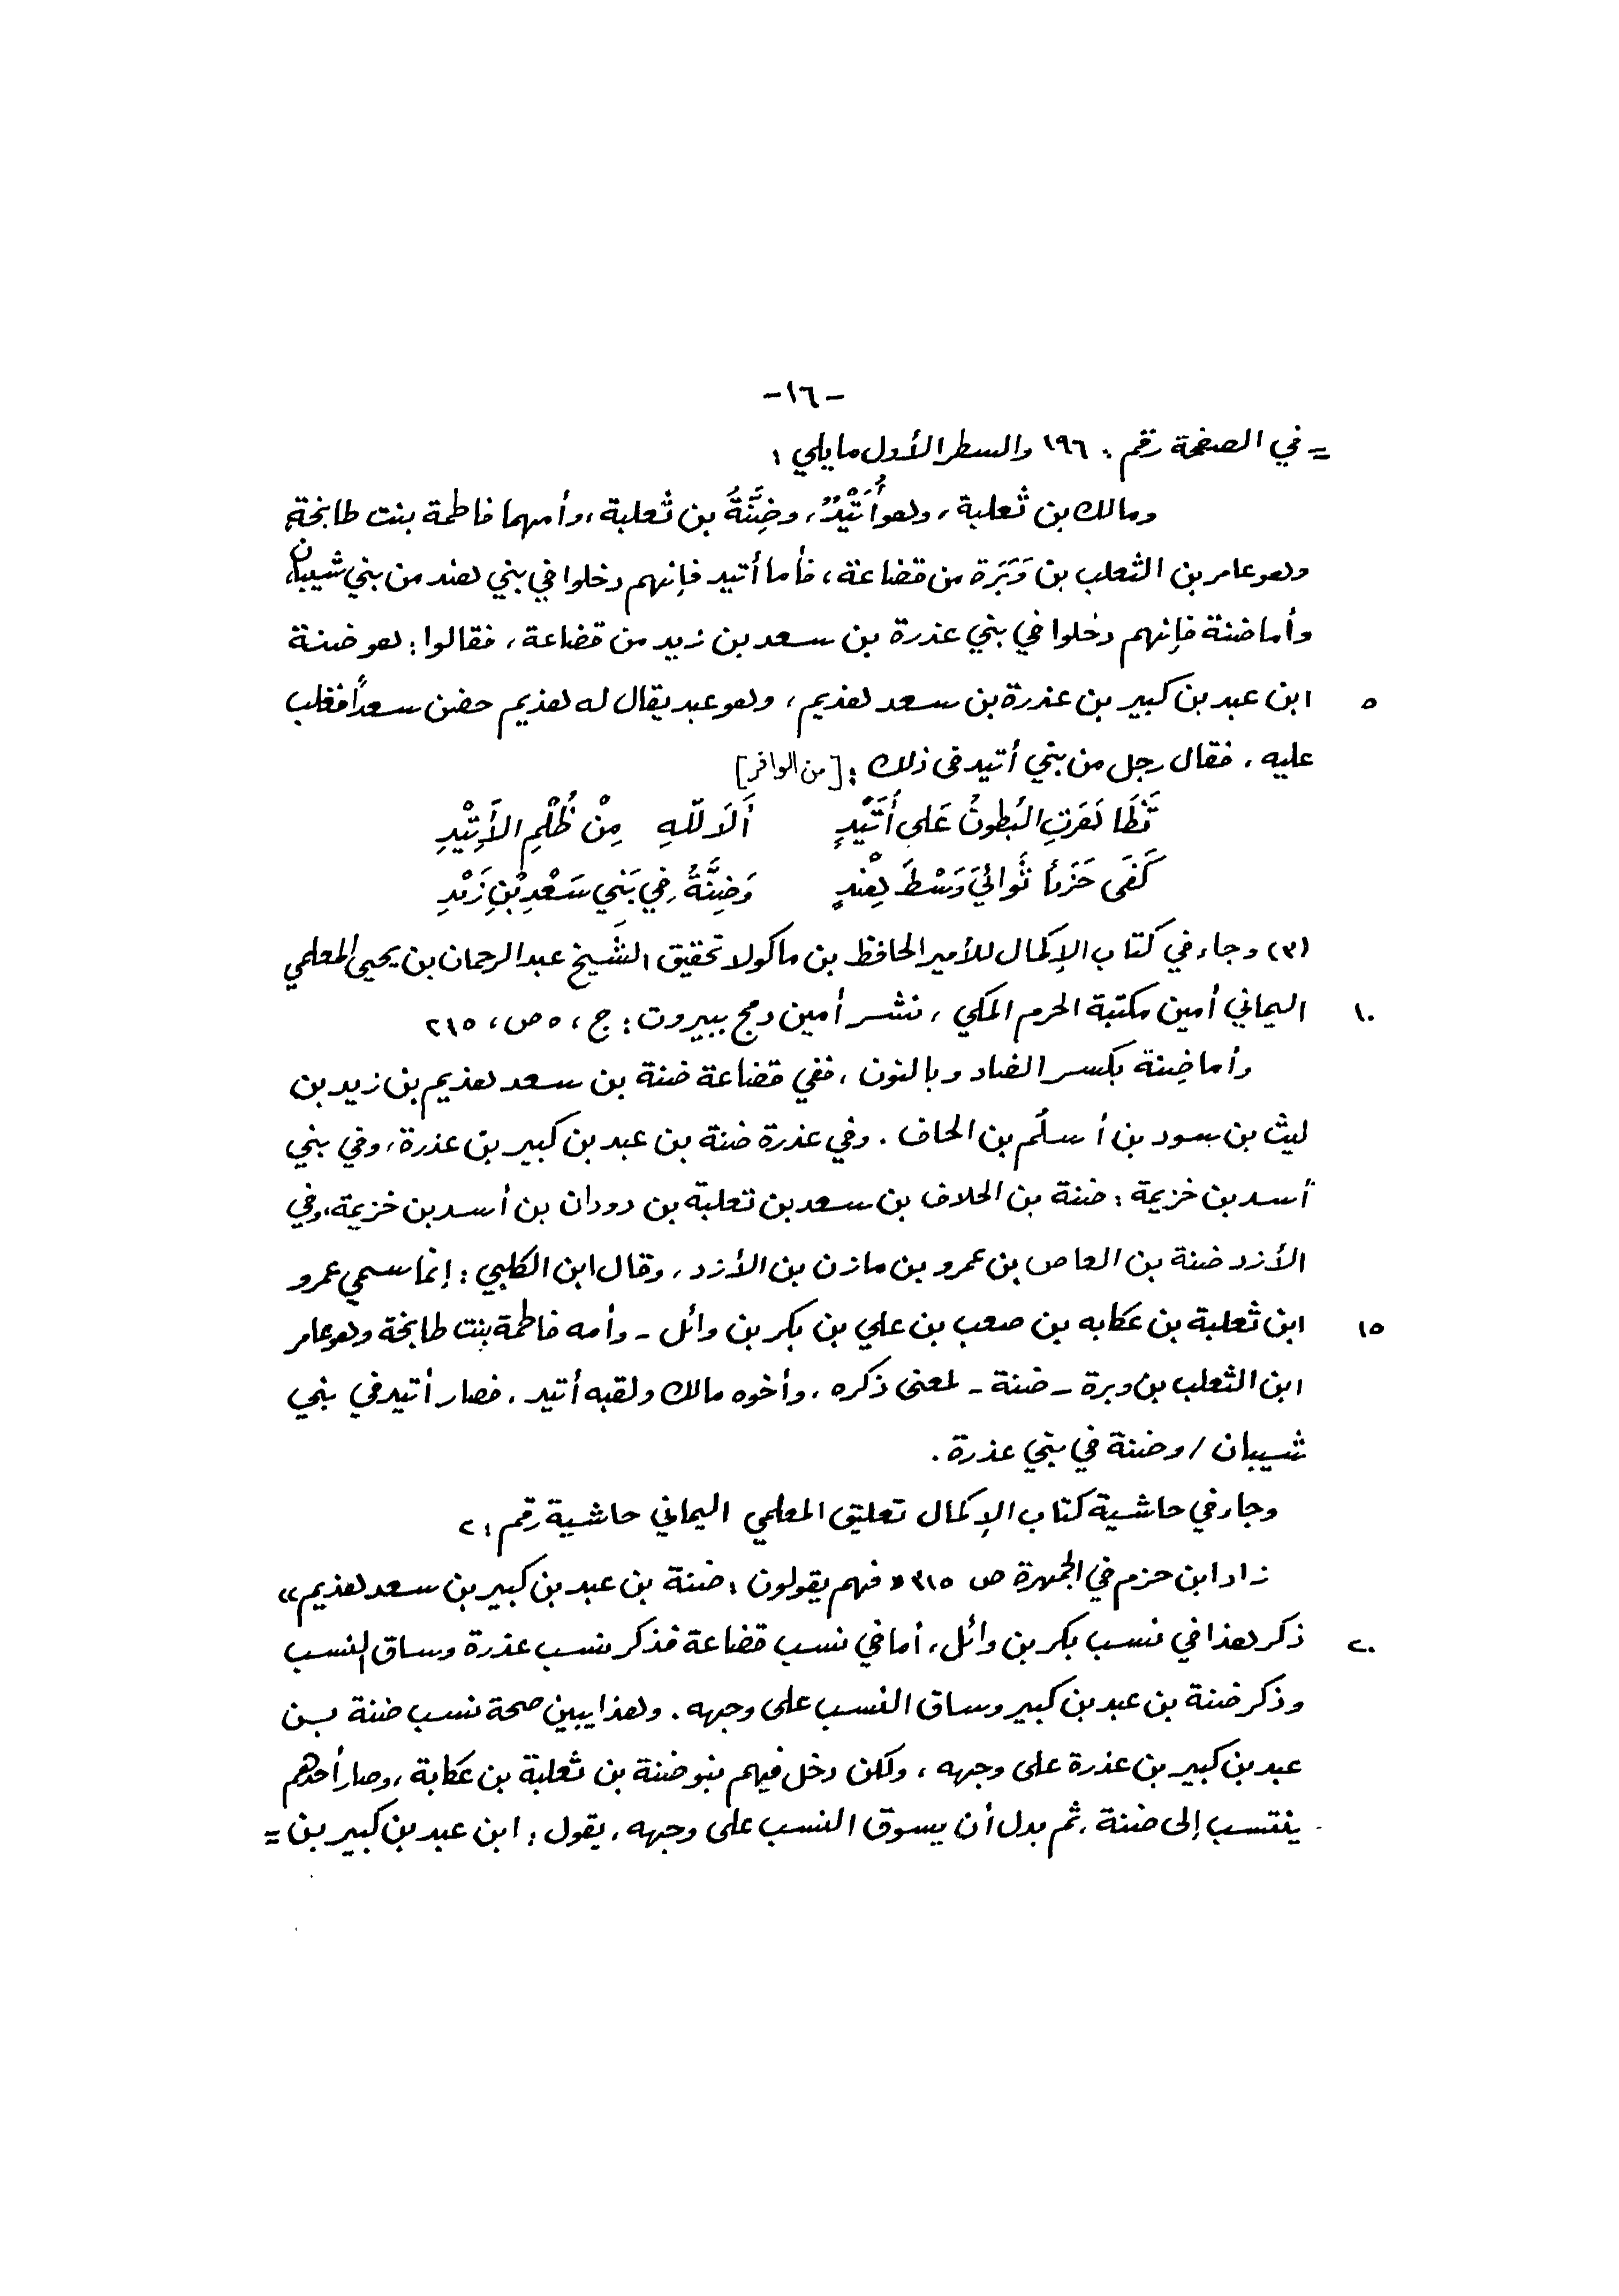 -١٦-
= في الصفحة رقم: ١٩٦ والسطر الأول مايلي:
ومالك بن ثعلبة، وهو أُتَيْدٌ، وضِنَّةُ بن ثعلبة، وأمهما فاطمة بنت طابخة
وهو عامر بن الثعلب بن وَبَرَة من قضاعة، فأما أتيد فإنهم دخلوا في بني هند من بني شيبان،
وأما ضنة فإنهم دخلوا في بني عذرة بن سعد بن زيد من قضاعة، فقالوا: هو ضنة
٥ ابن عبد بن كبير بن عذرة بن سعد هذيم، وهو عبد يقال له هذيم حضن سعداً فغلب
عليه. فقال رجل من بني أتيد في ذلك: [من الوافر]
تَظَاهَرَتِ البُطونُ عَلى أُتَيْدٍ أَلَا للّهِ مِنْ ظُلْمِ الأُتَيْدِ
كَفَى حَزَناً ثَوائِيَ وَسْطَ هِنْدٍ وَضِنَّةُ في بَني سَعْدِ بْنِ زَيْدِ
(٣) وجاء في كتاب الإكمال للأمير الحافظ بن ماكولا تحقيق الشَيخ عبد الرحمان بن يحيى المعلمي
١٠ اليماني أمين مكتبة الحرم المكي، نشر أمين دمج ببيروت: ج، ٥ ص، ٢١٥
وأما ضِنة بكسر الضاد وبالنون، ففي قضاعة ضنة بن سعد هذيم بن زيد بن
ليث بن سود بن أسلُم بن الحاف. وفي عذرة ضنة بن عبد بن كبير بن عذرة، وفي بني
أسد بن خزيمة: ضنة بن الحلاف بن سعد بن ثعلبة بن دودان بن أسد بن خزيمة، وفي
الأزد ضنة بن العاص بن عمرو بن مازن بن الأزد، وقال ابن الكلبي: إنما سمي عمرو
١٥ ابن ثعلبة بن عكابه بن صعب بن علي بن بكر بن وائل - وأمه فاطمة بنت طابخة وهو عامر
ابن الثعلب بن وبرة - ضنة - لمعنى ذكره، وأخوه مالك ولقبه أتيد، فصار أتيد في بني
شيبان / وضنة في بني عذرة.
وجاء في حاشية كتاب الإكمال تعليق المعلمي اليماني حاشية رقم: ٢
زاد ابن حزم في الجمهرة ص ٣١٥ «فهم يقولون: ضنة بن عبد بن كبير بن سعد هذيم»
٢٠ ذكر هذا في نسب بكر بن وائل، أما في نسب قضاعة فذكر نسب عذرة وساق النسب
وذكر ضنة بن عبد بن كبير وساق النسب على وجهه. وهذا يبين صحة نسب ضنة بن
عبد بن كبير بن عذرة على وجهه، ولكن دخل فيهم بنو ضنة بن ثعلبة بن عكابة، وصار أحدهم
ينتسب إلى ضنة، ثم بدل أن يسوق النسب على وجهه، يقول: ابن عبد بن كبير بن =